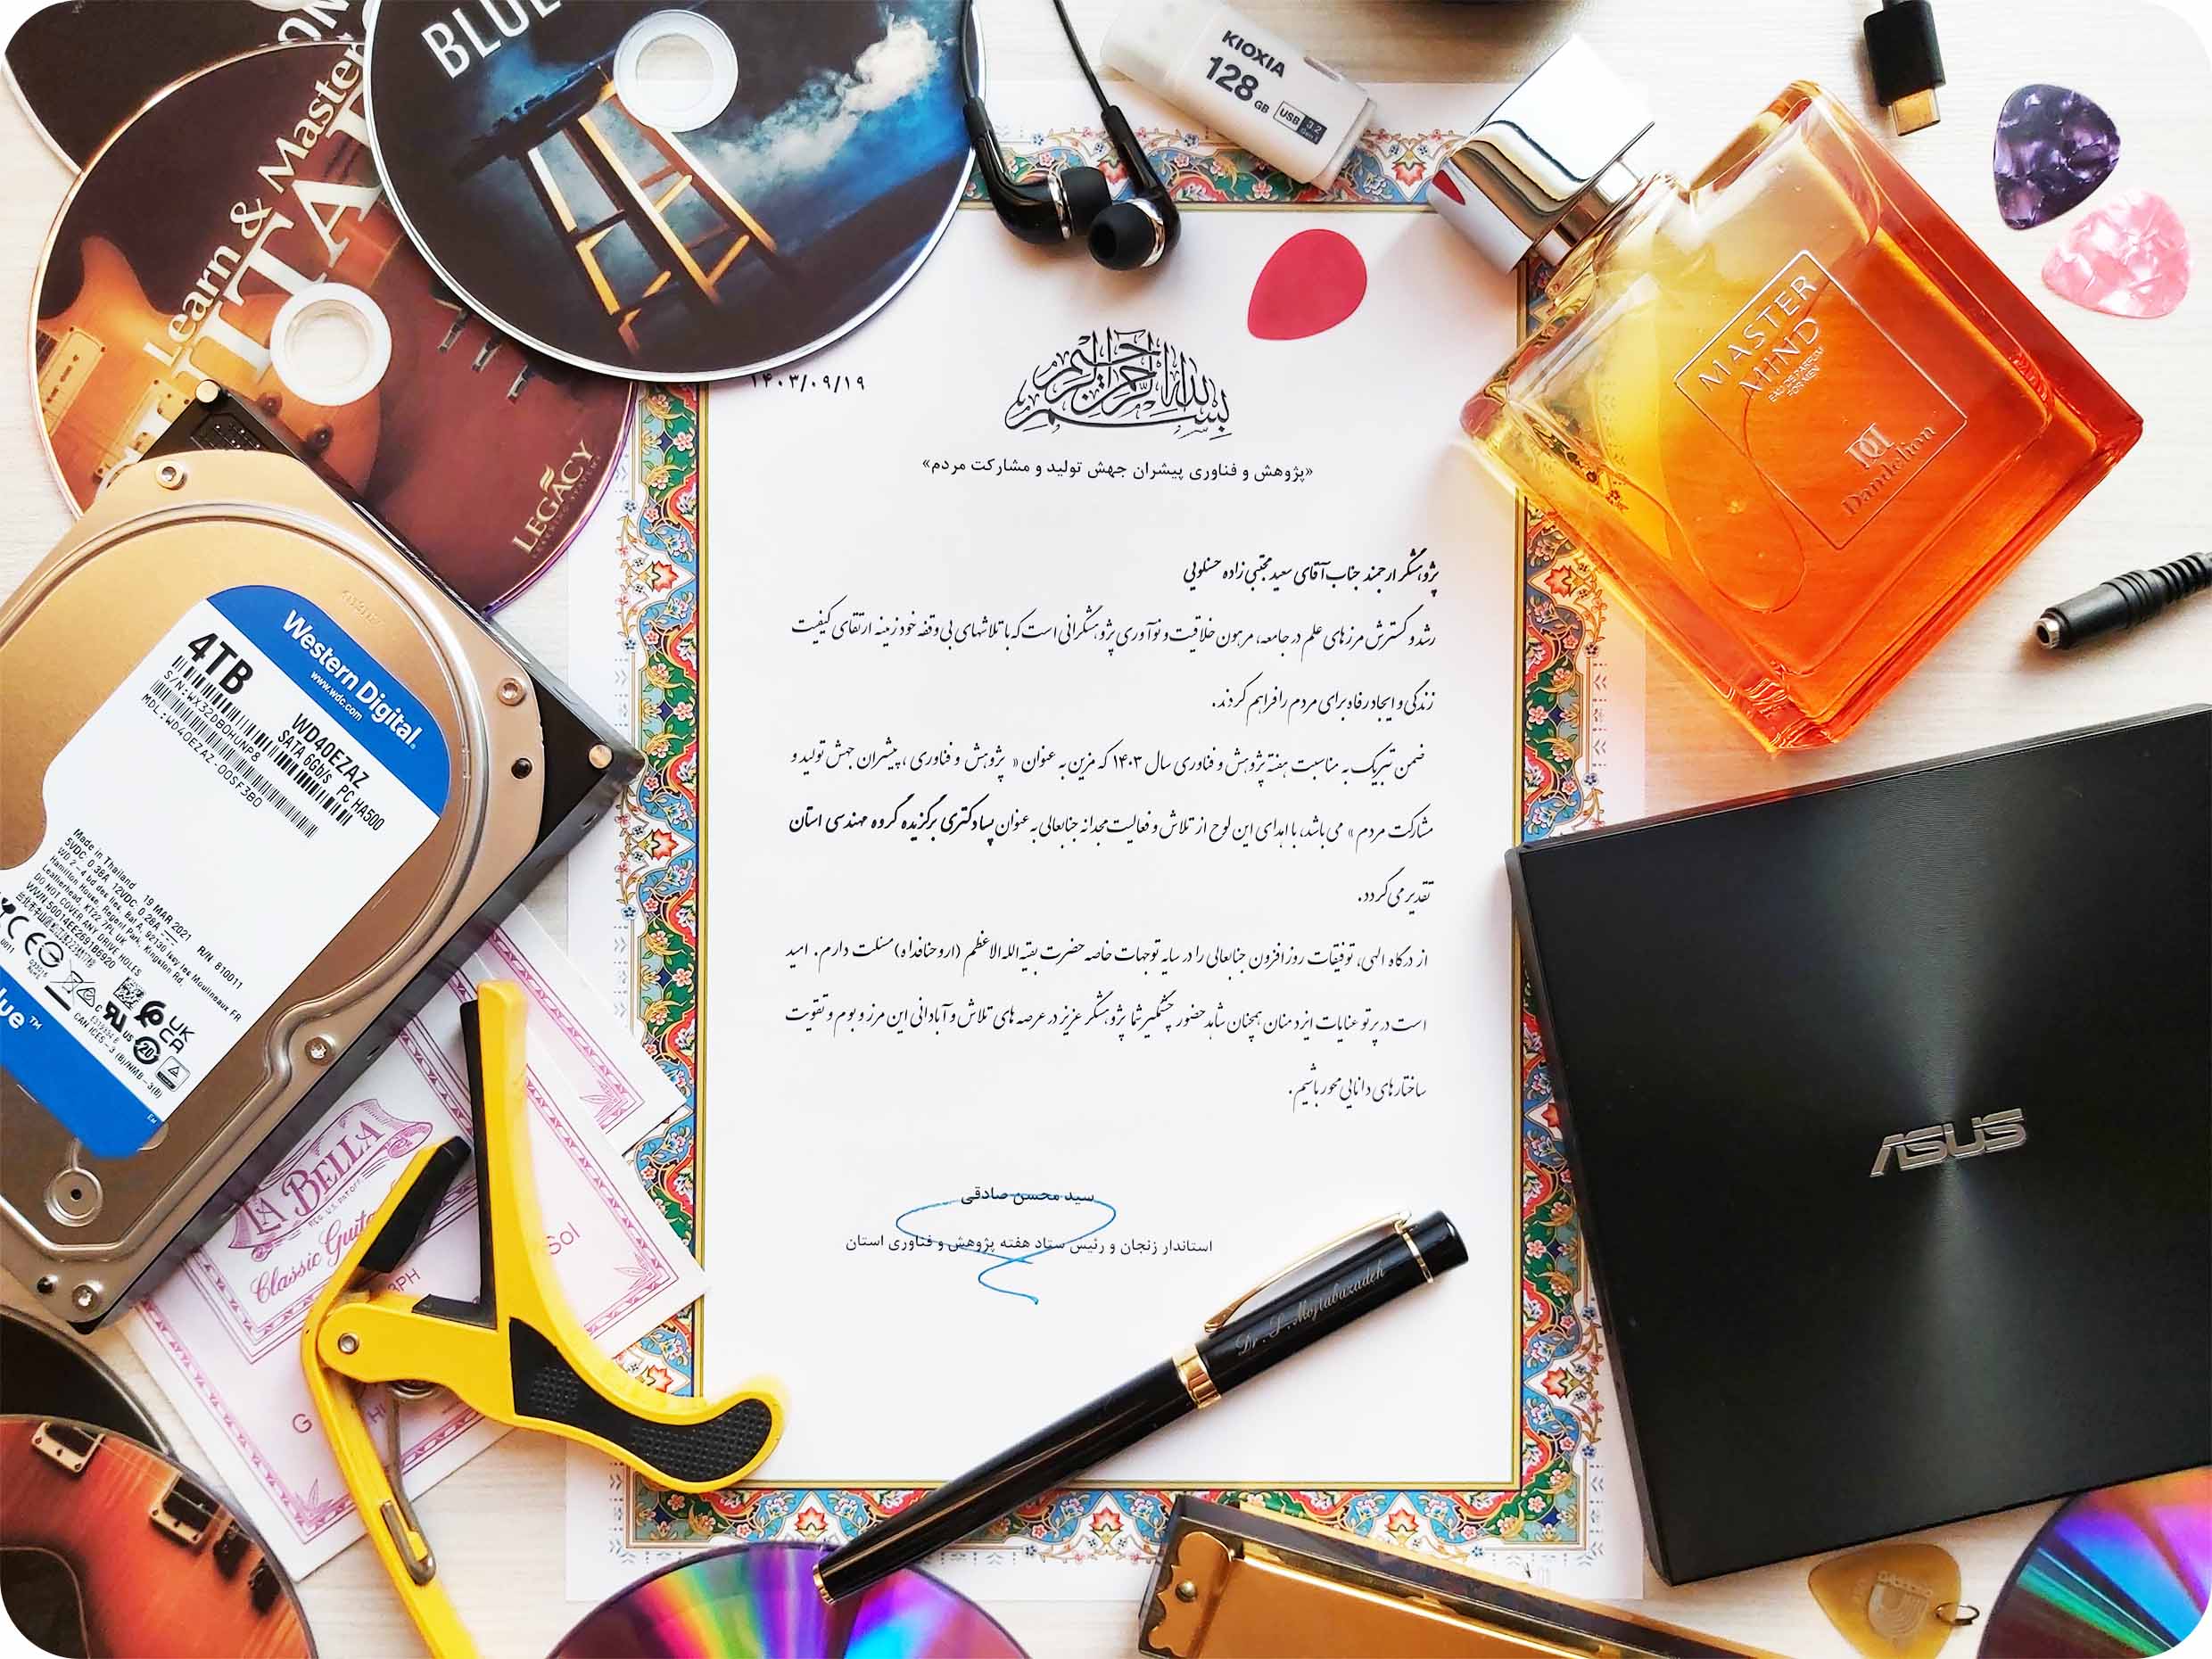 BLUE
Learn & Master
LEGACY
KIOXIA
128 GB
USB 3.2 Gen 1
MASTER
MIND
EAU DE PARFUM
FOR MEN
Dandelion
۱۴۰۳/۰۹/۱۹
بسم الله الرحمن الرحیم
«پژوهش و فناوری پیشران جهش تولید و مشارکت مردم»
پژوهشگر ارجمند جناب آقای سعید مجتبی زاده حسنلویی
رشد و گسترش مرزهای علم در جامعه، مرهون خلاقیت و نوآوری پژوهشگرانی است که با تلاشهای بی وقفه خود زمینه ارتقای کیفیت
زندگی و ایجاد رفاه برای مردم را فراهم کردند.
ضمن تبریک به مناسبت هفته پژوهش و فناوری سال ۱۴۰۳ که مزین به عنوان « پژوهش و فناوری ، پیشران جهش تولید و
مشارکت مردم » می باشد، با اهدای این لوح از تلاش و فعالیت مجدانه جنابعالی به عنوان پسادکتری برگزیده گروه مهندسی استان
تقدیر می گردد.
از درگاه الهی، توفیقات روزافزون جنابعالی را در سایه توجهات خاصه حضرت بقیه الله الاعظم (ارواحنافداه) مسئلت دارم. امید
است در پرتو عنایات ایزد منان همچنان شاهد حضور چشمگیر شما پژوهشگر عزیز در عرصه های تلاش و آبادانی این مرز و بوم و تقویت
ساختارهای دانایی محور باشیم.
سید محسن صادقی
استاندار زنجان و رئیس ستاد هفته پژوهش و فناوری استان
Dr. S. Mojtabazadeh
ASUS
Western Digital
www.wdc.com
4TB
S/N: WX32DB0HUNP8
MDL: WD40EZAZ-00SF3B0
WD40EZAZ
SATA 6Gb/s
PC HA500
Made in Thailand 19 MAR 2021 R/N: 810011
5VDC: 0.38A 12VDC: 0.28A
DO NOT COVER ANY DRIVE HOLES
WWN: 50014EE2691B6920
CAN ICES-3 (B)/NMB-3(B)
LA BELLA
Classic Guita
Sol
G